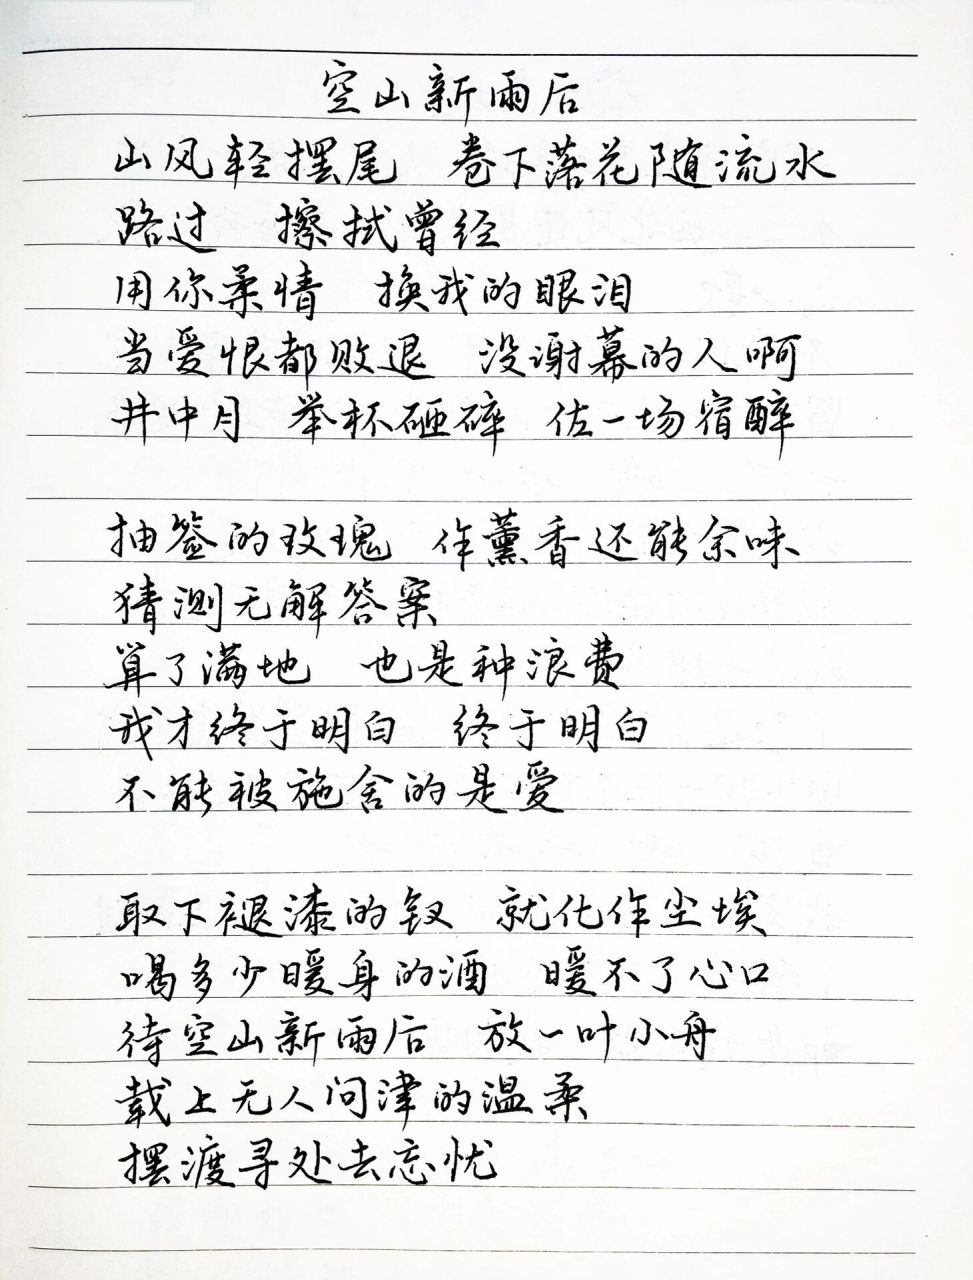 空山新雨后
山风轻摆尾 卷下落花随流水
路过 擦拭曾经
用你柔情 换我的眼泪
当爱恨都败退 没谢幕的人啊
井中月 举杯砸碎 佐一场宿醉
抽签的玫瑰 作薰香还能余味
猜测无解答案
算了满地 也是种浪费
我才终于明白 终于明白
不能被施舍的是爱
取下褪漆的钗 就化作尘埃
喝多少暖身的酒 暖不了心口
待空山新雨后 放一叶小舟
载上无人问津的温柔
摆渡寻处去忘忧